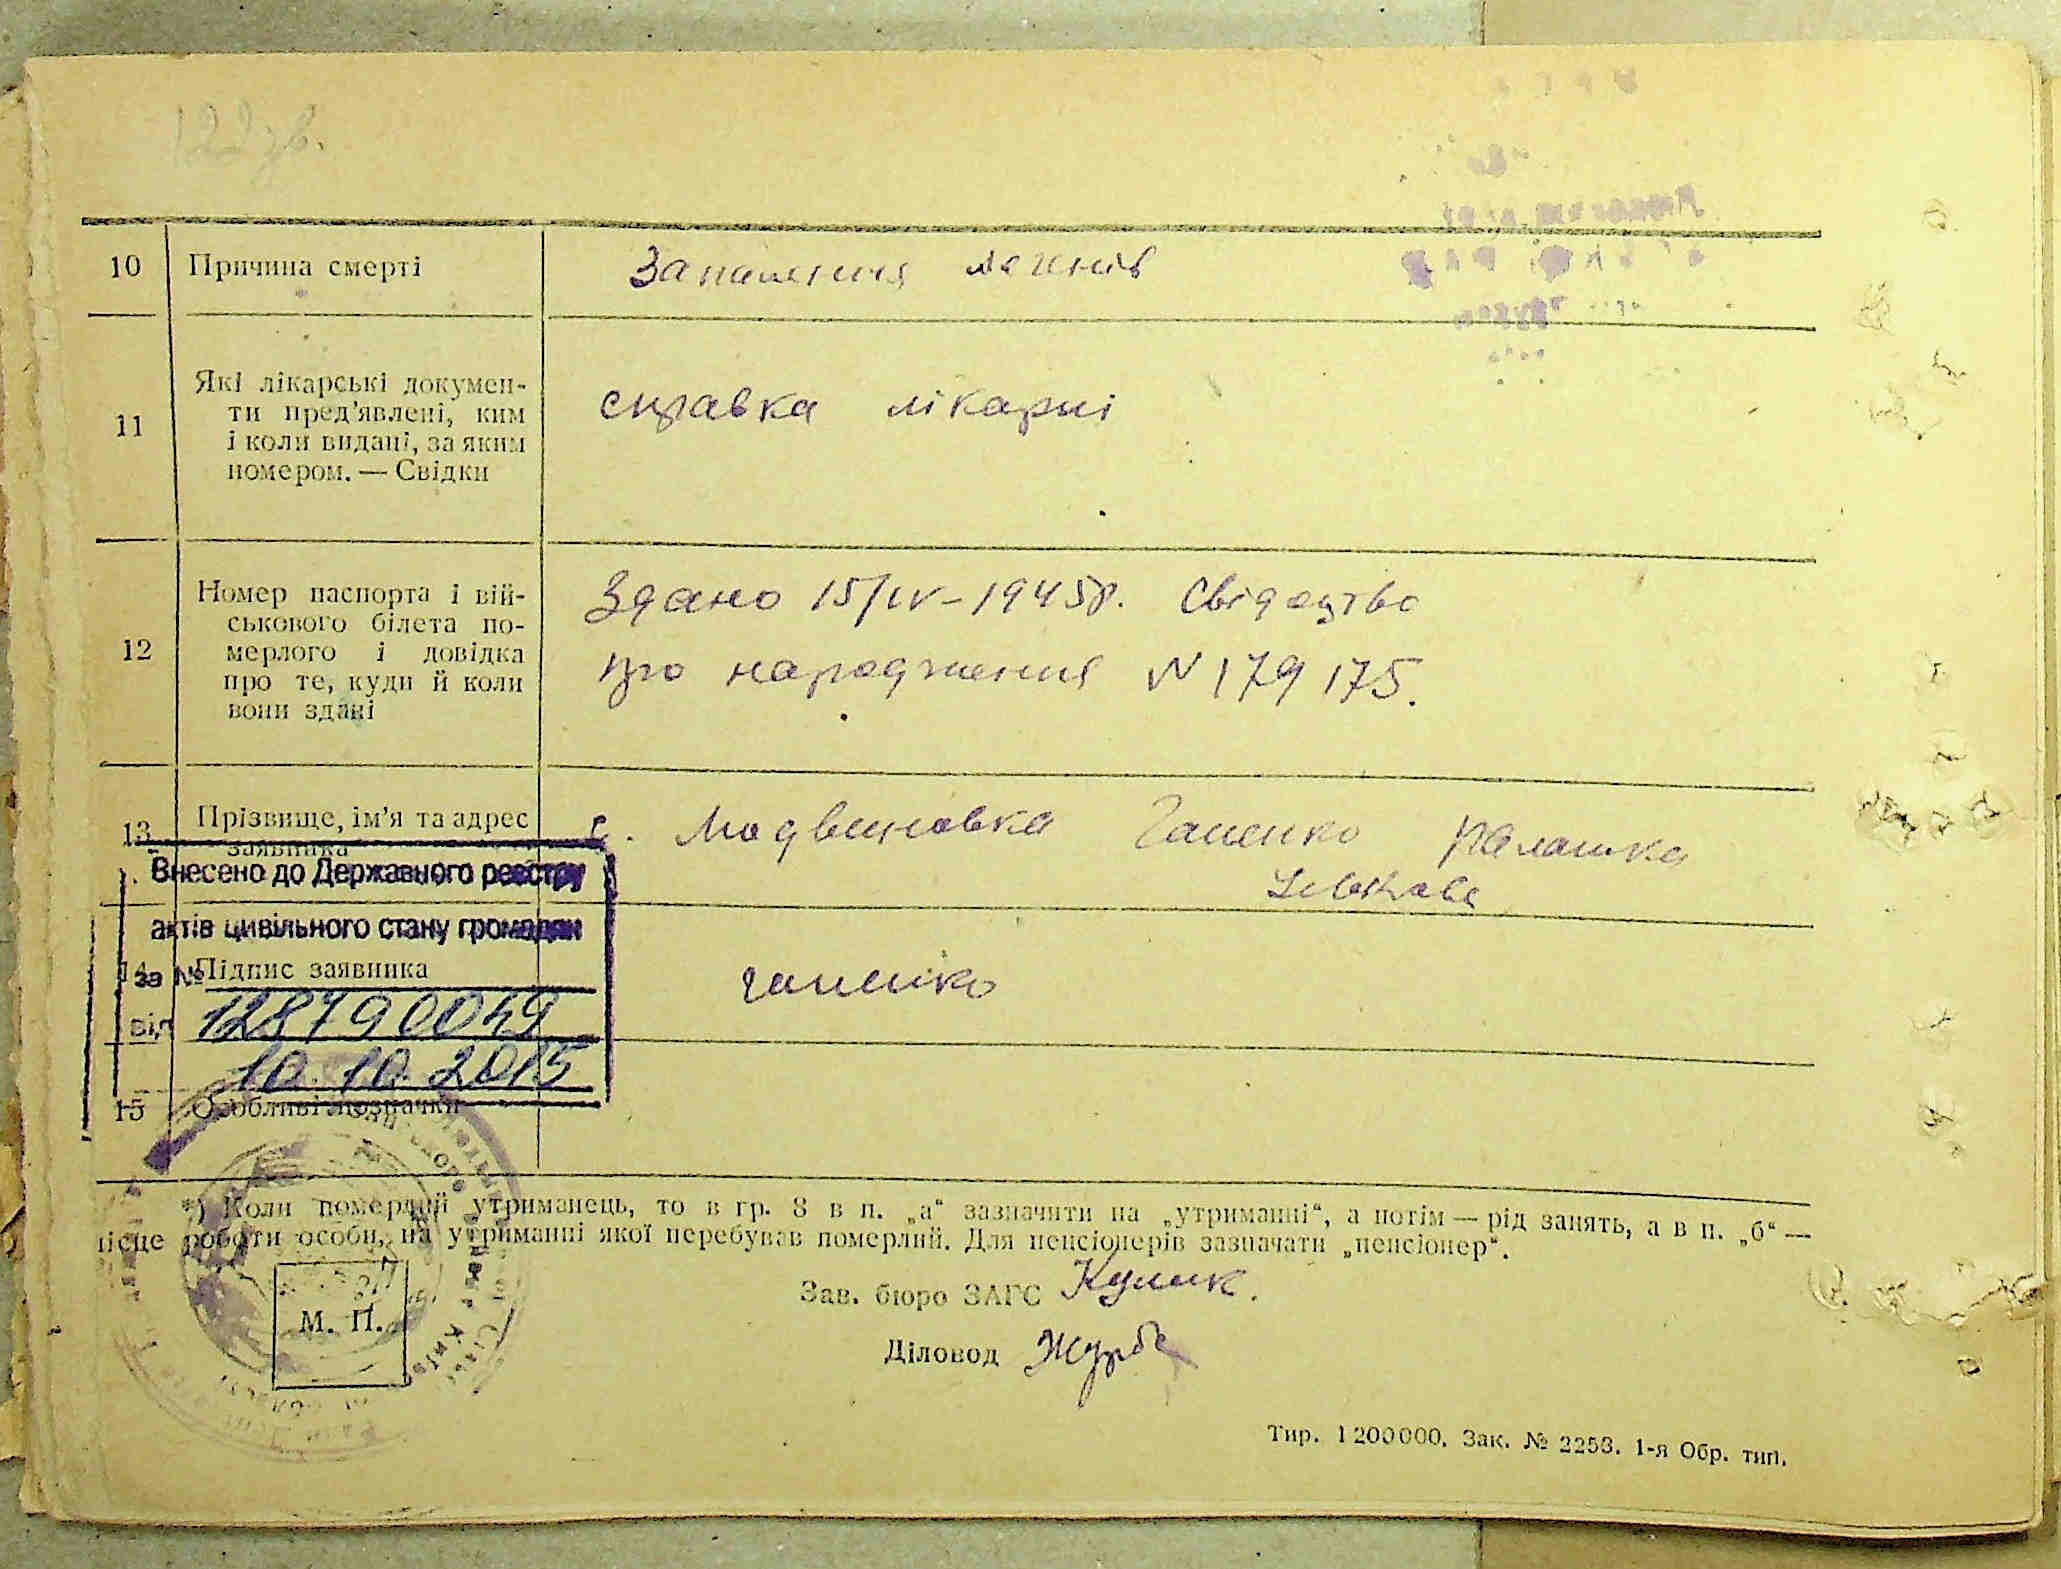 122зв.
10 Причина смерті Запалення легенів
11 Які лікарські докумен-
ти пред’явлені, ким
і коли видані, за яким
номером. — Свідки
справка лікарні
12 Номер паспорта і вій-
ськового білета по-
мерлого і довідка
про те, куди й коли
вони здані
Здано 15/IV-1945р. Свідоцтво
про народження N 179175.
13 Прізвище, ім’я та адрес
заявника
с. Мадвиновка Гапенко Палашка
Внесено до Державного реєстру
актів цивільного стану громадян
за № 128790049
від 10.10.2015
14 Підпис заявника гапенко
15 Особливі позначки
*) Коли померлий утриманець, то в гр. 8 в п. „а“ зазначити на „утриманні“, а потім — рід занять, а в п. „б“ —
місце роботи особи, на утриманні якої перебував померлий. Для пенсіонерів зазначати „пенсіонер“.
М. П.
Зав. бюро ЗАГС Кулик.
Діловод Журба
Тир. 1200000. Зак. № 2253. 1-я Обр. тип.